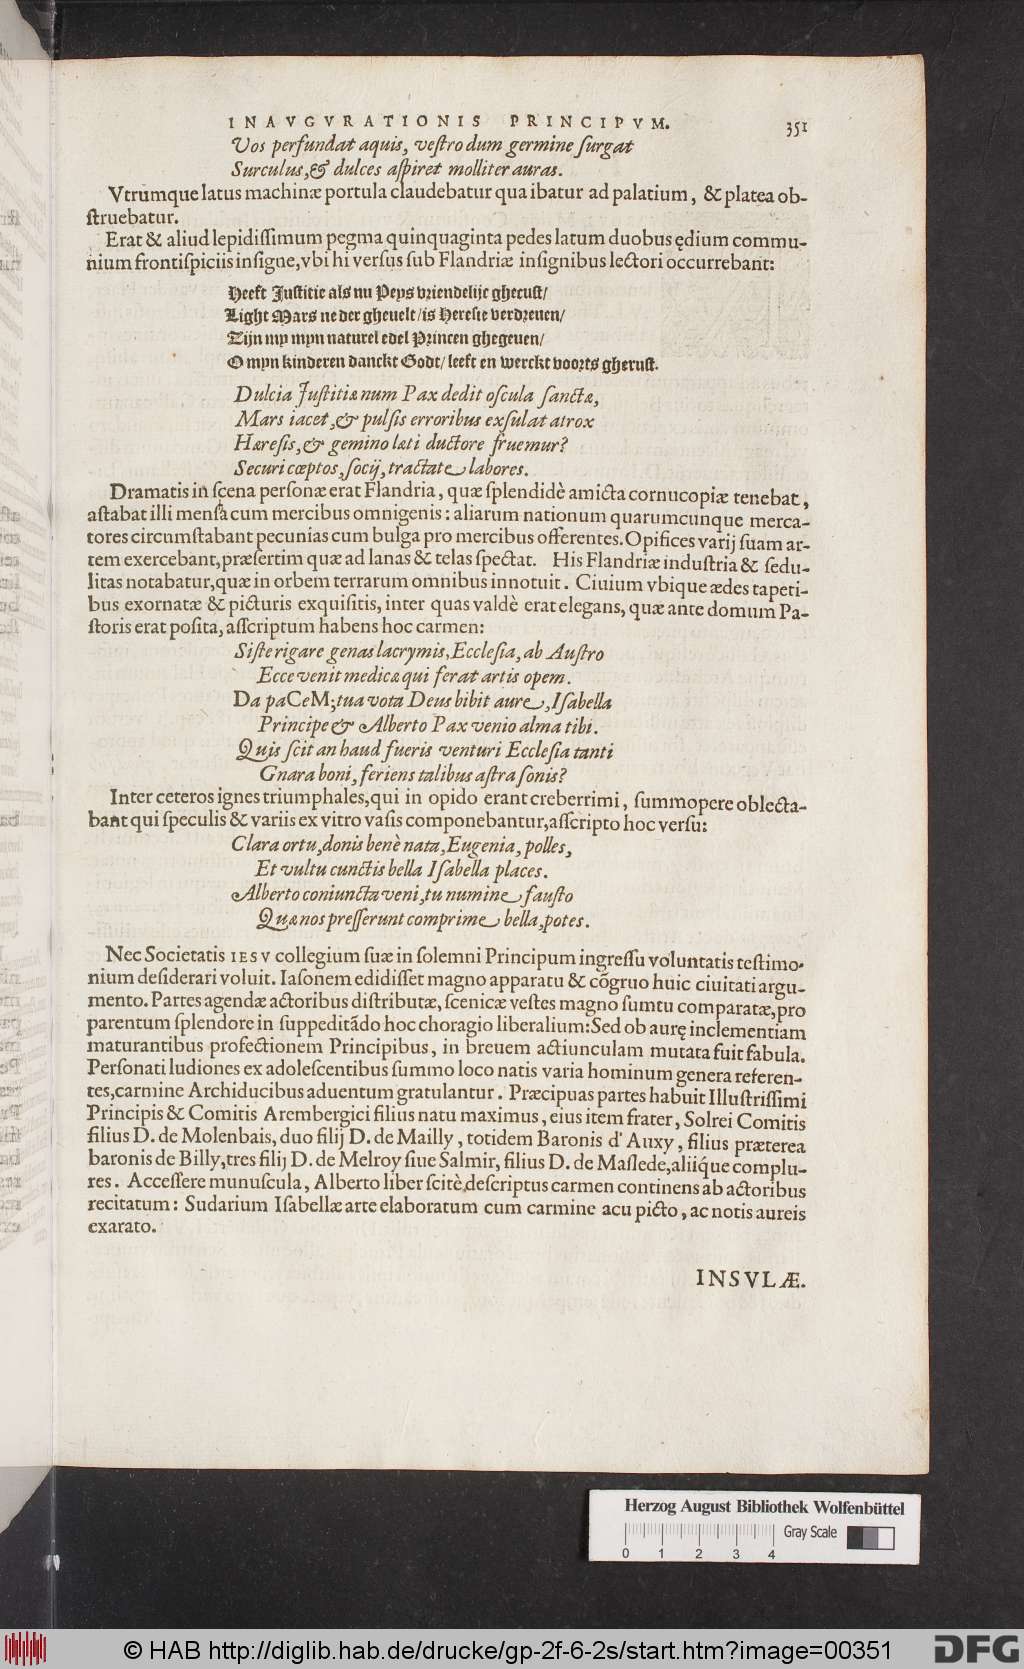 INAVGVRATIONIS PRINCIPVM. 351
Vos perfundat aquis, vestro dum germine surgat
Surculus, & dulces aspiret molliter auras.
Vtrumque latus machinæ portula claudebatur qua ibatur ad palatium, & platea ob-
struebatur.
Erat & aliud lepidissimum pegma quinquaginta pedes latum duobus ędium commu-
nium frontispiciis insigne, vbi hi versus sub Flandriæ insignibus lectori occurrebant:
Heeft Justitie als nu Peys vriendelijc ghecust/
Light Mars ne der ghevelt/ is Heresie verdreven/
Tijn my myn naturel edel Princen ghegeven/
O myn kinderen danckt Godt/ leeft en werckt voorts gherust.
Dulcia Justitiæ num Pax dedit oscula sanctæ,
Mars iacet, & pulsis erroribus exsulat atrox
Hæresis, & gemino læti ductore fruemur?
Securi cœptos, socij, tractate labores.
Dramatis in scena personæ erat Flandria, quæ splendidè amicta cornucopiæ tenebat,
astabat illi mensa cum mercibus omnigenis: aliarum nationum quarumcunque merca-
tores circumstabant pecunias cum bulga pro mercibus offerentes. Opifices varij suam ar-
tem exercebant, præsertim quæ ad lanas & telas spectat. His Flandriæ industria & sedu-
litas notabatur, quæ in orbem terrarum omnibus innotuit. Ciuium vbique ædes tapeti-
bus exornatæ & picturis exquisitis, inter quas valdè erat elegans, quæ ante domum Pa-
storis erat posita, asscriptum habens hoc carmen:
Siste rigare genas lacrymis, Ecclesia, ab Austro
Ecce venit medicæ qui ferat artis opem.
Da paCeM; tua vota Deus bibit aure, Isabella
Principe & Alberto Pax venio alma tibi.
Quis scit an haud fueris venturi Ecclesia tanti
Gnara boni, feriens talibus astra sonis?
Inter ceteros ignes triumphales, qui in opido erant creberrimi, summopere oblecta-
bant qui speculis & variis ex vitro vasis componebantur, asscripto hoc versu:
Clara ortu, donis benè nata, Eugenia, polles,
Et vultu cunctis bella Isabella places.
Alberto coniuncta veni, tu numine fausto
Quæ nos presserunt comprime bella, potes.
Nec Societatis IESV collegium suæ in solemni Principum ingressu voluntatis testimo-
nium desiderari voluit. Iasonem edidisset magno apparatu & cõgruo huic ciuitati argu-
mento. Partes agendæ actoribus distributæ, scenicæ vestes magno sumtu comparatæ, pro
parentum splendore in suppeditãdo hoc choragio liberalium: Sed ob aurę inclementiam
maturantibus profectionem Principibus, in breuem actiunculam mutata fuit fabula.
Personati ludiones ex adolescentibus summo loco natis varia hominum genera referen-
tes, carmine Archiducibus aduentum gratulantur. Præcipuas partes habuit Illustrissimi
Principis & Comitis Arembergici filius natu maximus, eius item frater, Solrei Comitis
filius D. de Molenbais, duo filij D. de Mailly, totidem Baronis d'Auxy, filius præterea
baronis de Billy, tres filij D. de Melroy siue Salmir, filius D. de Maslede, aliiq́ue complu-
res. Accessere munuscula, Alberto liber scitè descriptus carmen continens ab actoribus
recitatum: Sudarium Isabellæ arte elaboratum cum carmine acu picto, ac notis aureis
exarato.
INSVLÆ.
Herzog August Bibliothek Wolfenbüttel
Gray Scale
0 1 2 3 4
© HAB http://diglib.hab.de/drucke/gp-2f-6-2s/start.htm?image=00351
DFG